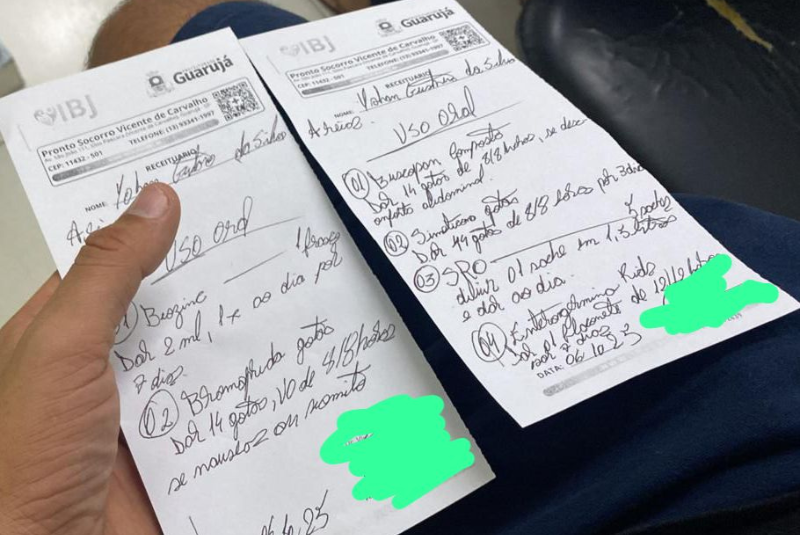 IBJ
Guarujá
Pronto Socorro Vicente de Carvalho
TELEFONE: (13) 93341-1997
CEP: 11432 - 501
RECEITUÁRIO
NOME: Yohan da Silva
USO Oral
1 frasco
01) Biozinc
Dar 2 ml, 1x ao dia por
7 dias
02) Bromoprida gotas
Dar 14 gotas, VO de 8/8 horas
se nauseaz ou vomito
IBJ
Guarujá
Pronto Socorro Vicente de Carvalho
TELEFONE: (13) 93341-1997
CEP: 11432 - 501
RECEITUÁRIO
NOME: Yohan da Silva
USO Oral
01) Buscopan Composto
Dar 14 gotas de 8/8 horas, se desc
onforto abdominal.
02) Simeticona gotas
Dar 14 gotas de 8/8 horas por 3 dias
03) SRO
diluir 01 sache em 1,5 litros
e dar ao dia.
04) Enterogermina Kids
Dar 1 flaconete de 12/12 horas
por 7 dias
DATA: 06.10.23